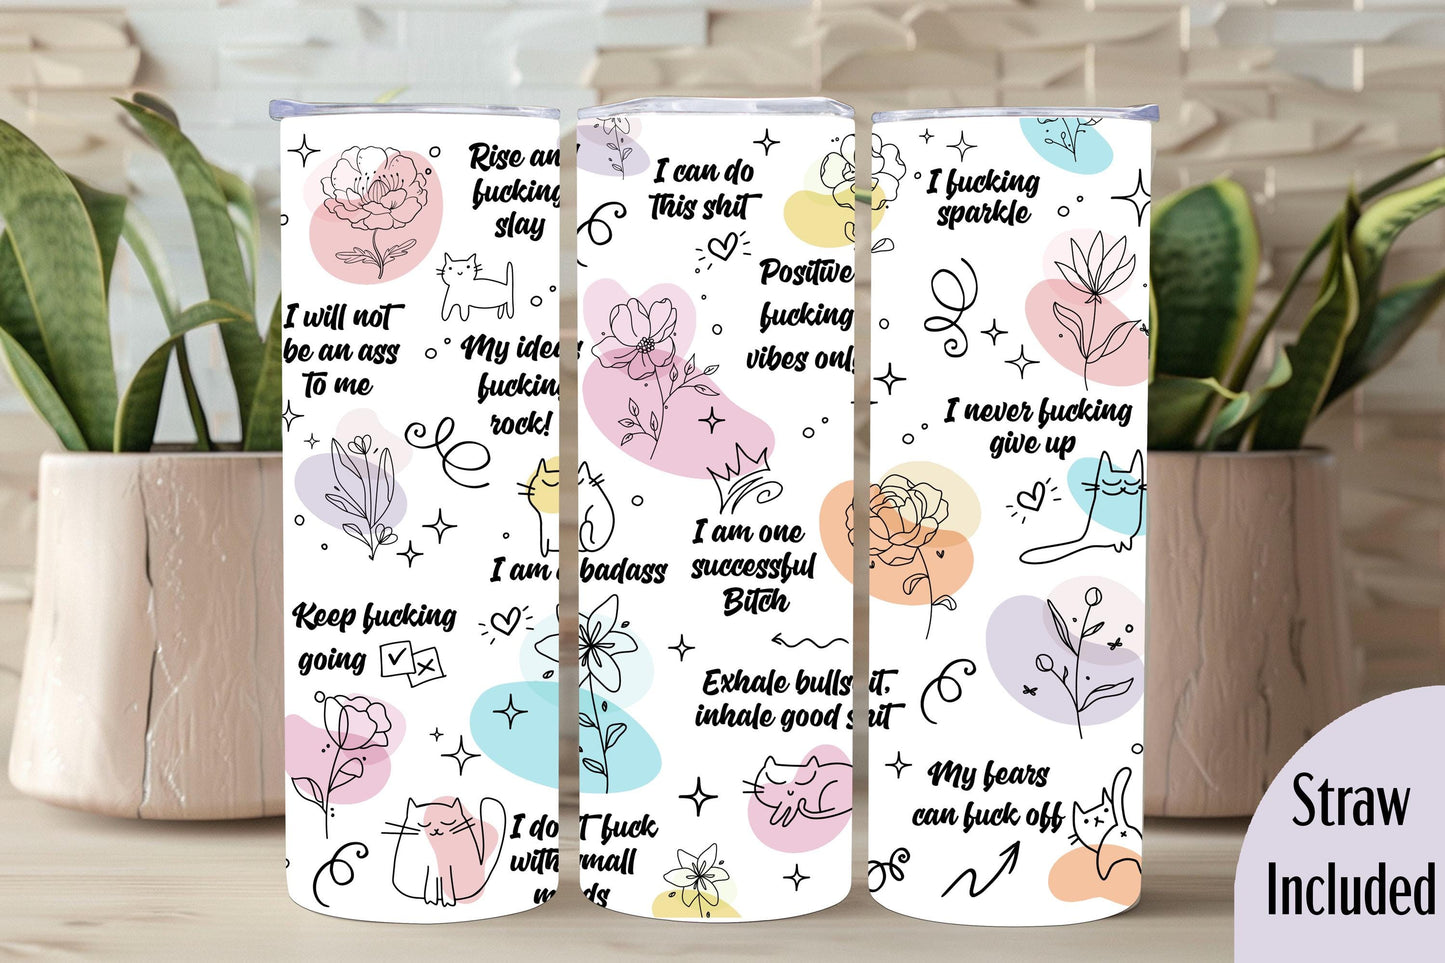 Rise an
fucking
slay
I will not
be an ass
to me
My ideas
fuckin
rock!
I am a badass
Keep fucking
going
I don't fuck
with small
minds
I can do
this shit
Positive
fucking
vibes only
I am one
successful
Bitch
Exhale bullshit,
inhale good shit
I fucking
sparkle
I never fucking
give up
My fears
can fuck off
Straw
Included